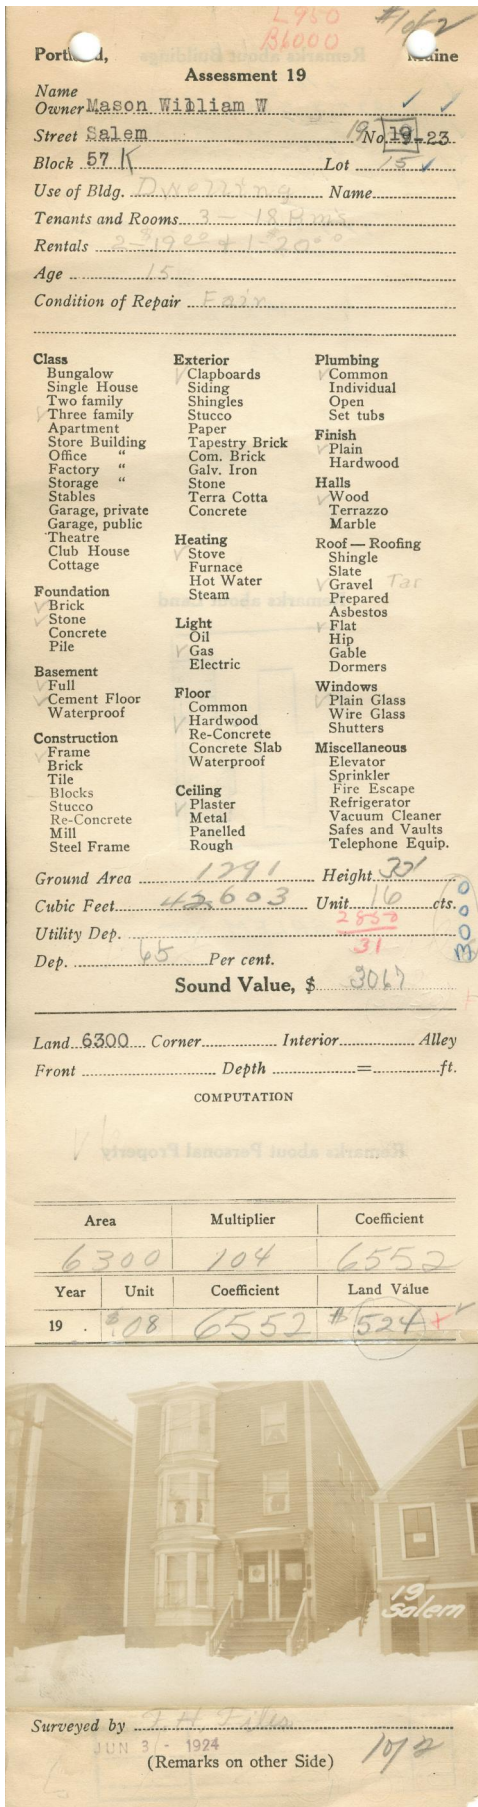 L950
#1 of 2
B6000
Portland, Maine
Assessment 19
Name
Owner Mason William W
Street Salem 19 No. 19-23
Block 57 K Lot 15
Use of Bldg. Dwelling Name
Tenants and Rooms 3 - 18 Rms
Rentals 2-$19.00 + 1-$20.00
Age 15
Condition of Repair Fair
Class
Bungalow
Single House
Two family
✓ Three family
Apartment
Store Building
Office "
Factory "
Storage "
Stables
Garage, private
Garage, public
Theatre
Club House
Cottage
Foundation
✓ Brick
✓ Stone
Concrete
Pile
Basement
✓ Full
✓ Cement Floor
Waterproof
Construction
✓ Frame
Brick
Tile
Blocks
Stucco
Re-Concrete
Mill
Steel Frame
Exterior
✓ Clapboards
Siding
Shingles
Stucco
Paper
Tapestry Brick
Com. Brick
Galv. Iron
Stone
Terra Cotta
Concrete
Heating
✓ Stove
Furnace
Hot Water
Steam
Light
Oil
✓ Gas
Electric
Floor
Common
✓ Hardwood
Re-Concrete
Concrete Slab
Waterproof
Ceiling
✓ Plaster
Metal
Panelled
Rough
Plumbing
✓ Common
Individual
Open
Set tubs
Finish
✓ Plain
Hardwood
Halls
✓ Wood
Terrazzo
Marble
Roof — Roofing
Shingle
Slate
✓ Gravel Tar
Prepared
Asbestos
✓ Flat
Hip
Gable
Dormers
Windows
✓ Plain Glass
Wire Glass
Shutters
Miscellaneous
Elevator
Sprinkler
Fire Escape
Refrigerator
Vacuum Cleaner
Safes and Vaults
Telephone Equip.
Ground Area 1291 Height 33'
Cubic Feet 42,603 Unit 16 cts.
Utility Dep. 2850
31
3000
Dep. 65 Per cent.
Sound Value, $ 3067
Land 6300 Corner Interior Alley
Front Depth = ft.
COMPUTATION
Area Multiplier Coefficient
6300 104 6552
Year Unit Coefficient Land Value
19 . $.08 6552 $524 +
19
Salem
Surveyed by F. H. Files
JUN 3 - 1924
(Remarks on other Side)
1 of 2